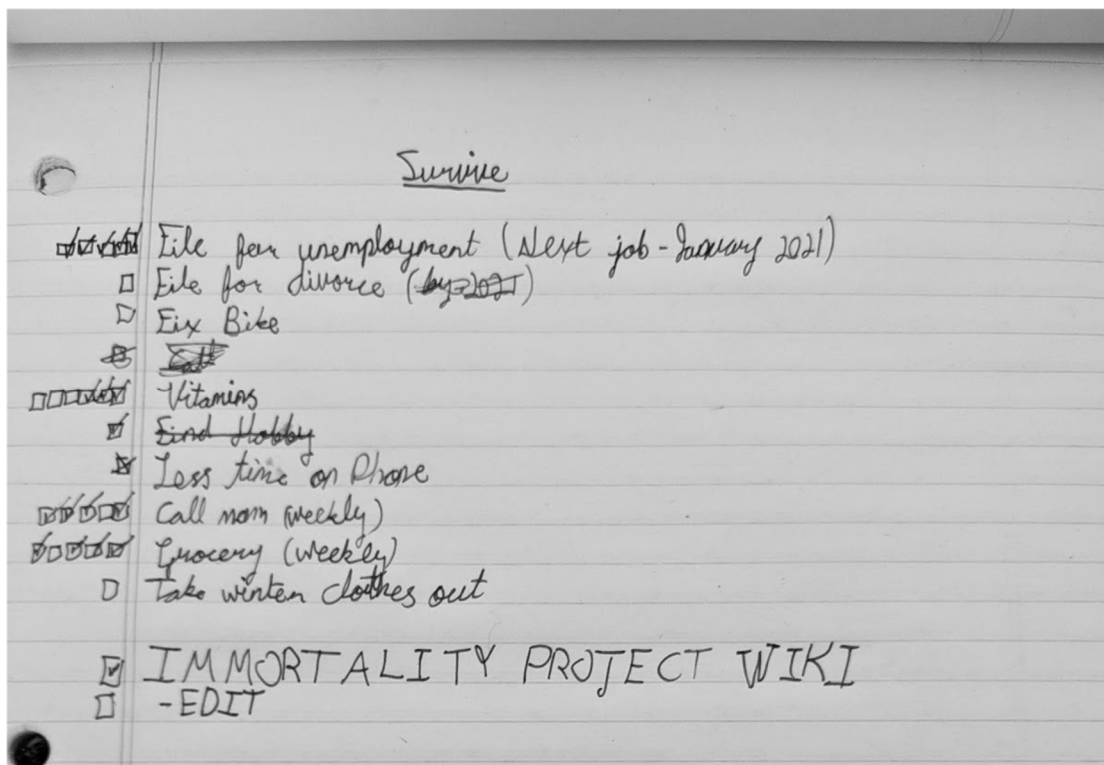 Survive
File for unemployment (Next job - January 2021)
File for divorce (by 2021)
Fix Bike
Vitamins
Find Hobby
Less time on Phone
Call mom (weekly)
Grocery (weekly)
Take winter clothes out
IMMORTALITY PROJECT WIKI
-EDIT